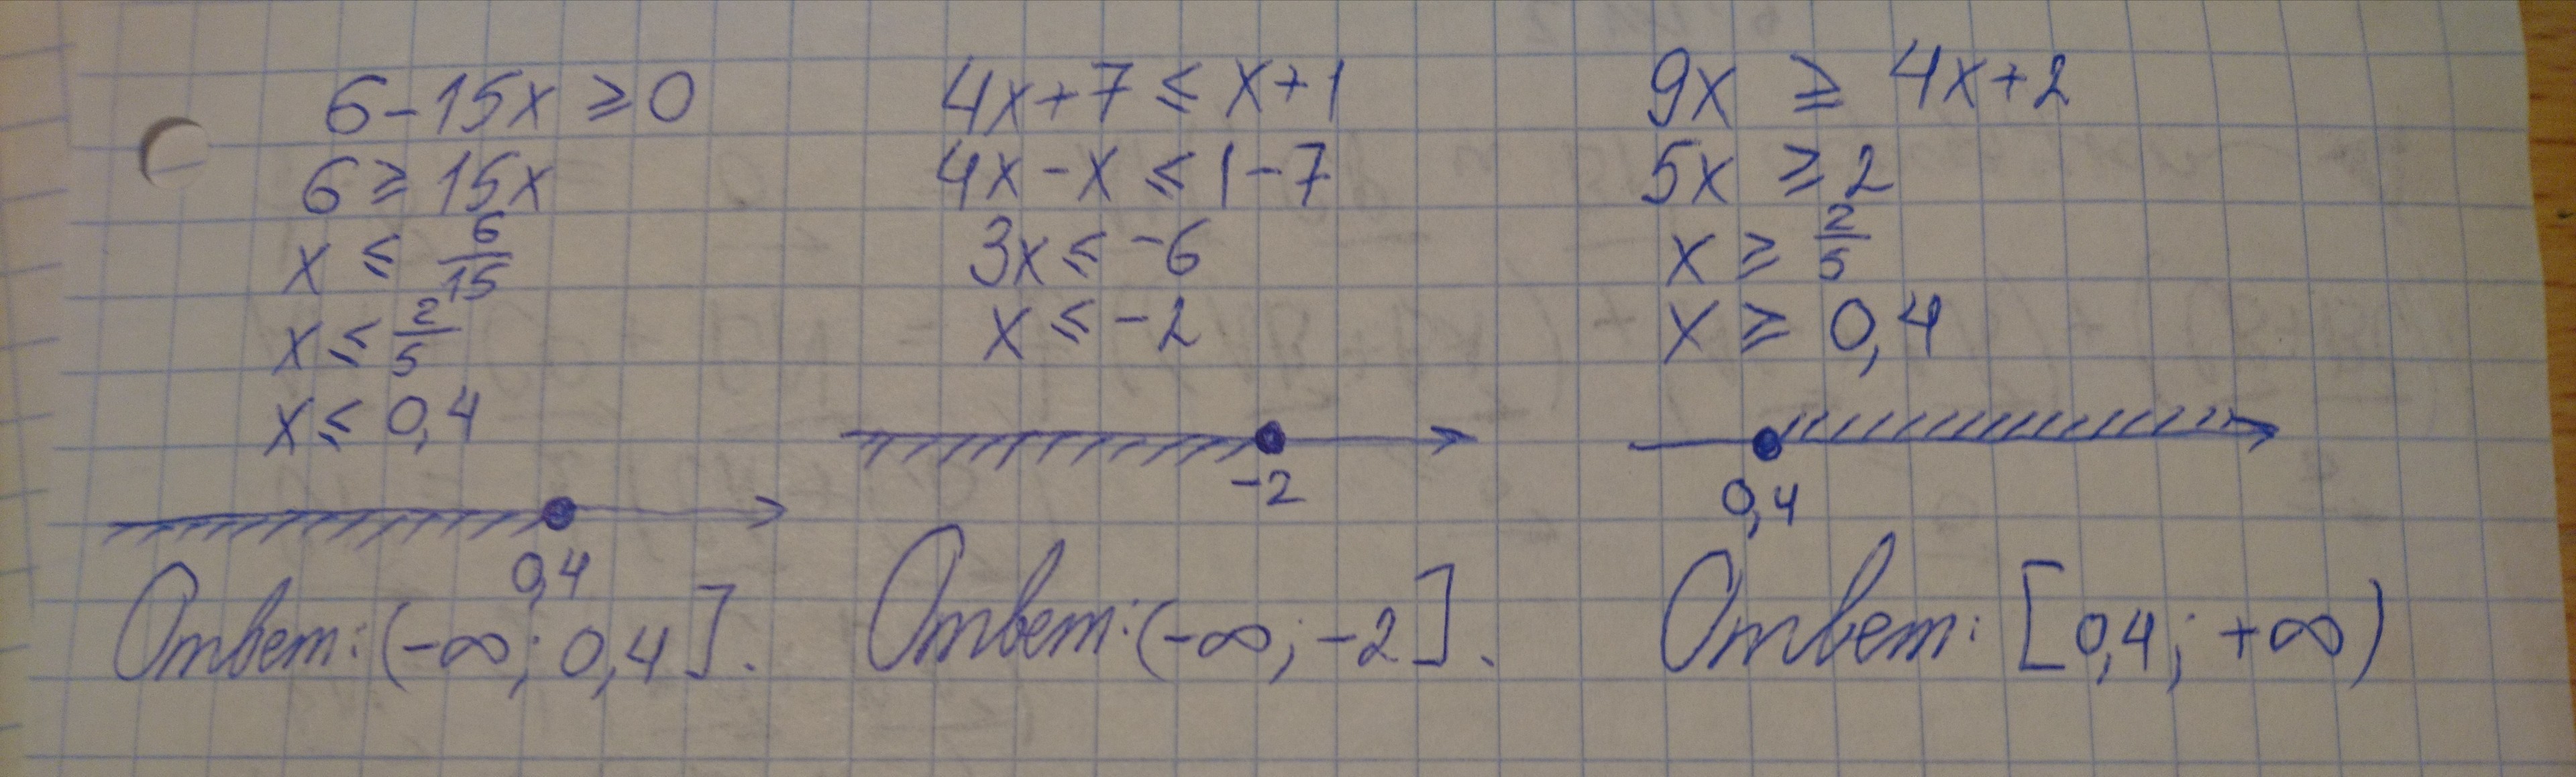 6-15x ≥ 0
6 ≥ 15x
x ≤ 6/15
x ≤ 2/5
x ≤ 0,4
0,4
Ответ: (-∞; 0,4].
4x+7 ≤ x+1
4x-x ≤ 1-7
3x ≤ -6
x ≤ -2
-2
Ответ: (-∞; -2].
9x ≥ 4x+2
5x ≥ 2
x ≥ 2/5
x ≥ 0,4
0,4
Ответ: [0,4; +∞)